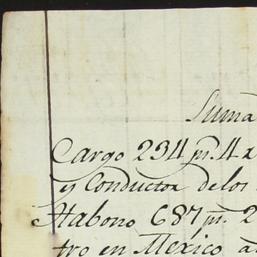 Suma
Cargo 234 ps. 4 r
y Conductor de los
Habono 687 ps. 2
tro en Mexico a